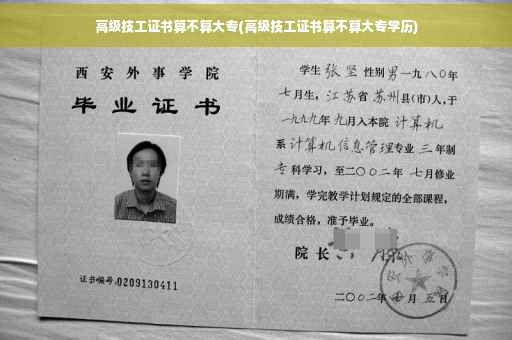 高级技工证书算不算大专(高级技工证书算不算大专学历)
西安外事学院
毕业证书
证书编号:0209130411
学生 张坚 性别 男 一九八〇年
七月生,江苏省 苏州县(市)人,于
一九九九年 九月入本院 计算机
系 计算机信息管理专业 三 年制
专科学习,至二〇〇二年 七月修业
期满,学完教学计划规定的全部课程,
成绩合格,准予毕业。
院长
二〇〇二年 月 五日